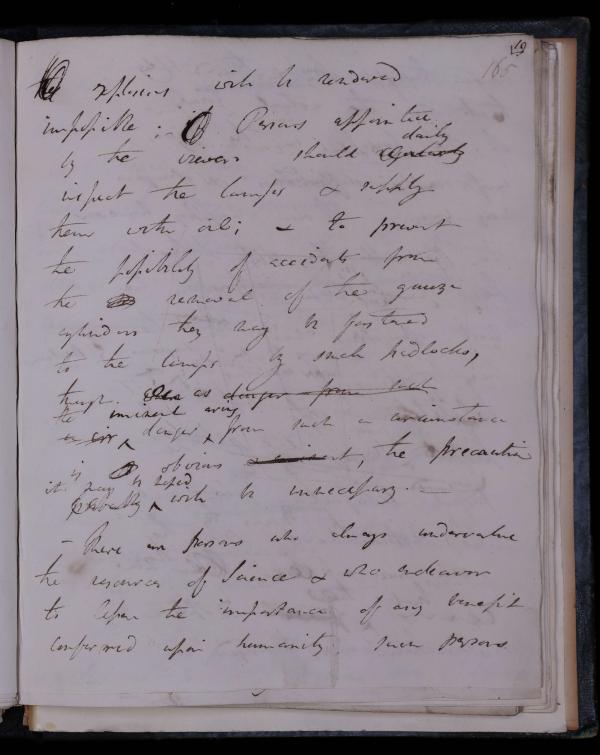 19
165
explosions will be rendered
impossible; if Persons appointed
by the viewers should daily
inspect the lamps & supply
them with oil; & to prevent
the possibility of accidents from
the removal of the gauze
cylinders they may be fastened
to the lamps by small padlocks,
though as danger from such
the imminent arising
danger from such a circumstance
is obvious, the precaution
it may be hoped
probably will be unnecessary. —
— There are persons who always undervalue
the resources of Science & who endeavor
to lessen the importance of any benefit
conferred upon humanity. Such persons